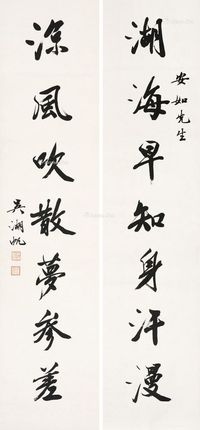 安如先生
湖海早知身汗漫
涼風吹散夢參差
吳湖帆